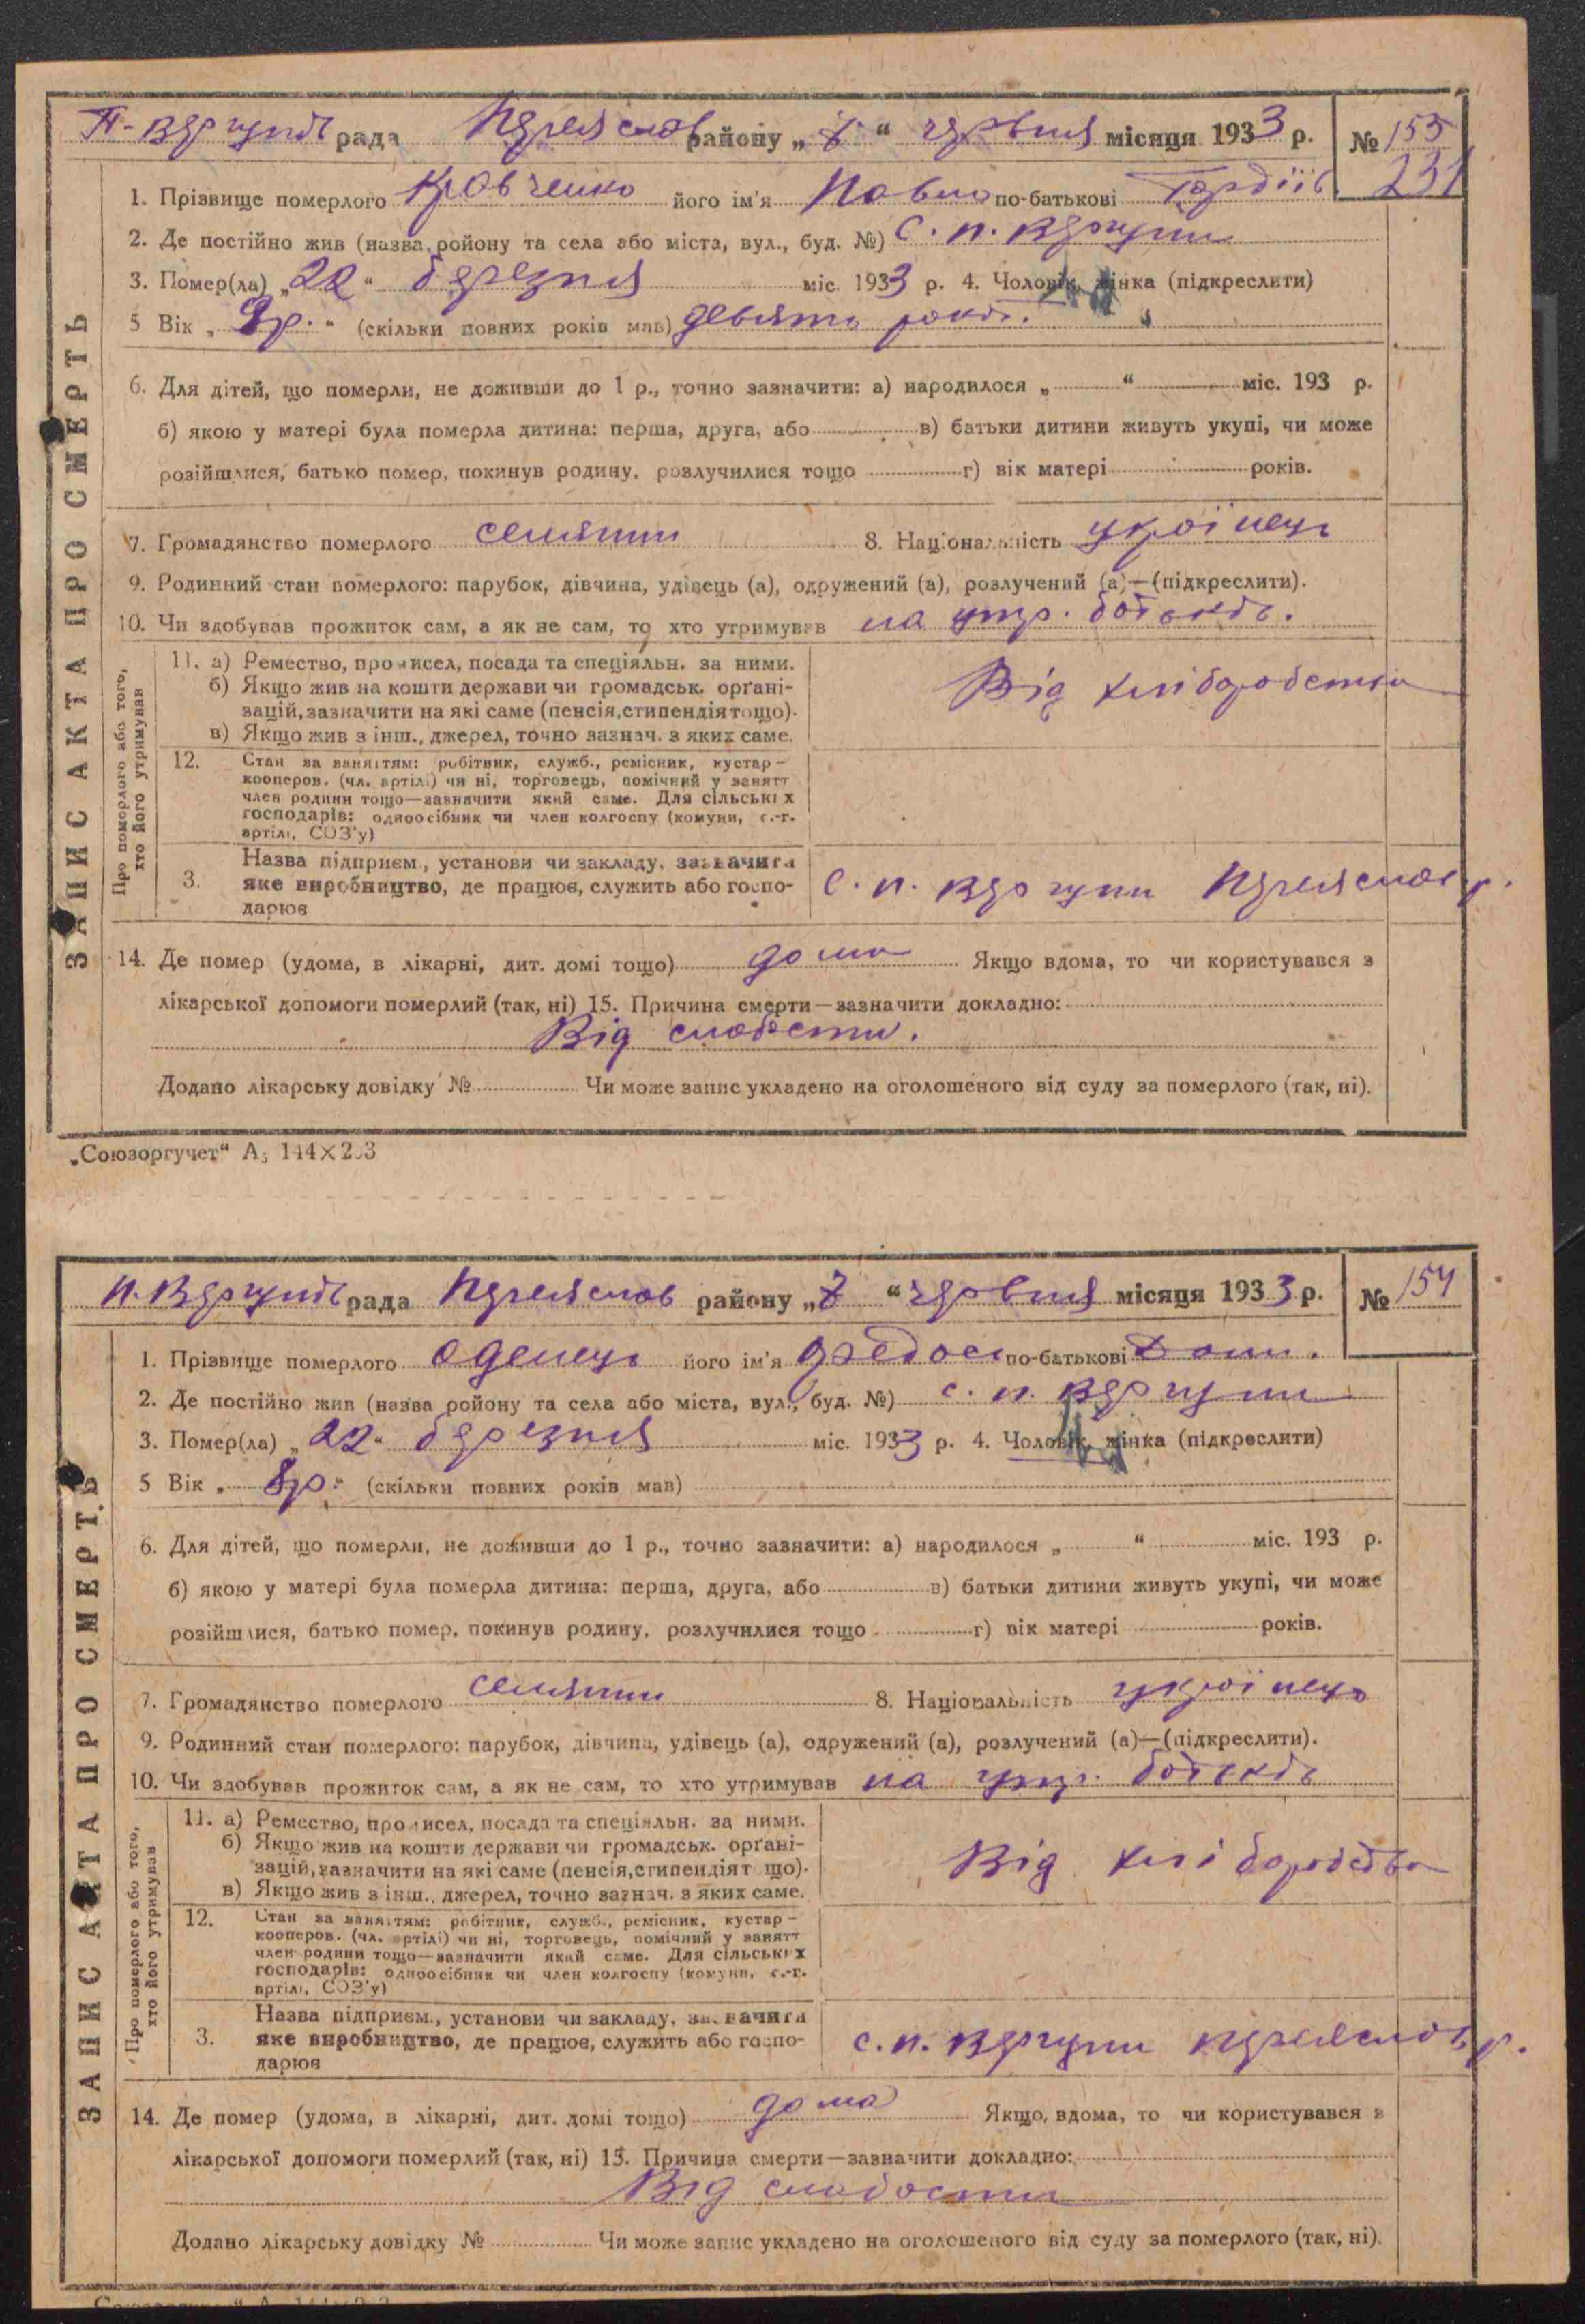 П-Вергунів рада Переяслов району „ 7 “ червня місяця 1933 р. № 153
231
1. Прізвище померлого Кровченко його ім'я Повло по-батькові Гордіїв
2. Де постійно жив (назва ройону та села або міста, вул., буд. №) С. п. Вергуни
3. Помер(ла) „ 22 “ березня міс 1933 р. 4. Чоловік, жінка (підкреслити)
5 Вік „ 9 р. “ (скільки повних років мав) девять років.
6. Для дітей, що померли, не доживши до 1 р., точно зазначити: а) народилося „ “ міс. 193 р.
б) якою у матері була померла дитина: перша, друга, або в) батьки дитини живуть укупі, чи може
розійшлися, батько помер, покинув родину, розлучилися тощо г) вік матері років.
7. Громадянство померлого селянин 8. Національність украінець
9. Родинний стан померлого: парубок, дівчина, удівець (а), одружений (а), розлучений (а)—(підкреслити).
10. Чи здобував прожиток сам, а як не сам, то хто утримував на утр. батьків.
11. а) Ремество, промисел, посада та спеціяльн. за ними.
б) Якщо жив на кошти держави чи громадськ. орґані-
зацій, зазначити на які саме (пенсія, стипендія тощо).
в) Якщо жив з інш., джерел, точно зазнач. з яких саме.
Від хліборобства
12. Стан за заняттям: робітник, служб., ремісник, кустар—
кооперов. (чл. артілі) чи ні, торговець, помічний у занятт
член родини тощо—зазначити який саме. Для сільських
господарів: одноосібник чи член колгоспу (комуни, с.-г.
артілі, СОЗ'у)
3. Назва підприєм., установи чи закладу, зазначити
яке виробництво, де працює, служить або госпо-
дарює
С. п. Вергуни Переяслов р.
14. Де помер (удома, в лікарні, дит. домі тощо) дома Якщо вдома, то чи користувався з
лікарської допомоги померлий (так, ні) 15. Причина смерти—зазначити докладно:
Від слабости.
Додано лікарську довідку № Чи може запис укладено на оголошеного від суду за померлого (так, ні).
ЗАПИС АКТА ПРО СМЕРТЬ
Про померлого або того,
хто його утримував
„Союзоргучет“ А5 144×203
П. Вергунів рада Переяслов району „ 7 “ червня місяця 1933 р. № 154
1. Прізвище померлого Оденець його ім'я Федос по-батькові
2. Де постійно жив (назва ройону та села або міста, вул., буд. №) с. п. Вергуни
3. Помер(ла) „ 22 “ березня міс. 1933 р. 4. Чоловік, жінка (підкреслити)
5 Вік „ 8 р. “ (скільки повних років мав)
6. Для дітей, що померли, не доживши до 1 р., точно зазначити: а) народилося „ “ міс. 193 р.
б) якою у матері була померла дитина: перша, друга, або в) батьки дитини живуть укупі, чи може
розійшлися, батько помер, покинув родину, розлучилися тощо г) вік матері років.
7. Громадянство померлого селянин 8. Національність украінець
9. Родинний стан померлого: парубок, дівчина, удівець (а), одружений (а), розлучений (а)—(підкреслити).
10. Чи здобував прожиток сам, а як не сам, то хто утримував на утр. батьків
11. а) Ремество, промисел, посада та спеціяльн. за ними.
б) Якщо жив на кошти держави чи громадськ. орґані-
зацій, зазначити на які саме (пенсія, стипендія т що).
в) Якщо жив з інш., джерел, точно зазнач. з яких саме.
Від хліборобства
12. Стан за заняттям: робітник, служб., ремісник, кустар—
кооперов. (чл. артілі) чи ні, торговець, помічний у занятт
член родини тощо—зазначити який саме. Для сільських
господарів: одноосібник чи член колгоспу (комуни, с.-г.
артілі, СОЗ'у)
3. Назва підприєм., установи чи закладу, зазначити
яке виробництво, де працює, служить або госпо-
дарює
с. п. Вергуни Переяслов р.
14. Де помер (удома, в лікарні, дит. домі тощо) дома Якщо, вдома, то чи користувався з
лікарської допомоги померлий (так, ні) 15. Причина смерти—зазначити докладно:
Від слабости
Додано лікарську довідку № Чи може запис укладено на оголошеного від суду за померлого (так, ні).
ЗАПИС АКТА ПРО СМЕРТЬ
Про померлого або того,
хто його утримував